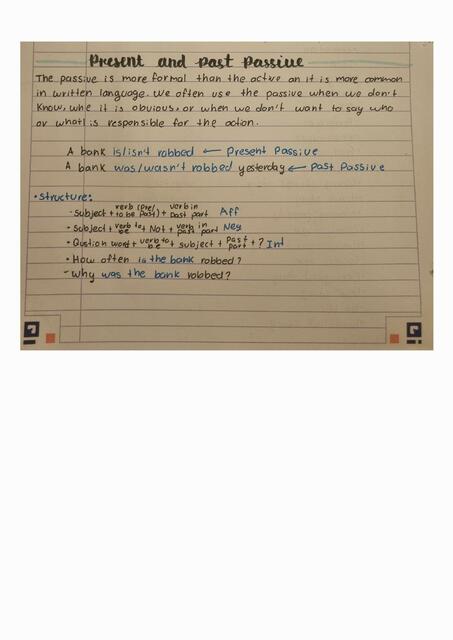 Present and Past Passive
The passive is more formal than the active an it is more common
in written language. We often use the passive when we don't
Know, whe it is obvious, or when we don't want to say who
or what is responsible for the action.
A bank is/isn't robbed ← Present Passive
A bank was/wasn't robbed yesterday ← Past Passive
• Structure:
- Subject + verb to be (Pre/Past) + verb in past part Aff
- Subject + verb to be + Not + verb in past part Neg
• Qustion word + verb to be + subject + past part + ? Int
• How often is the bank robbed?
- Why was the bank robbed?